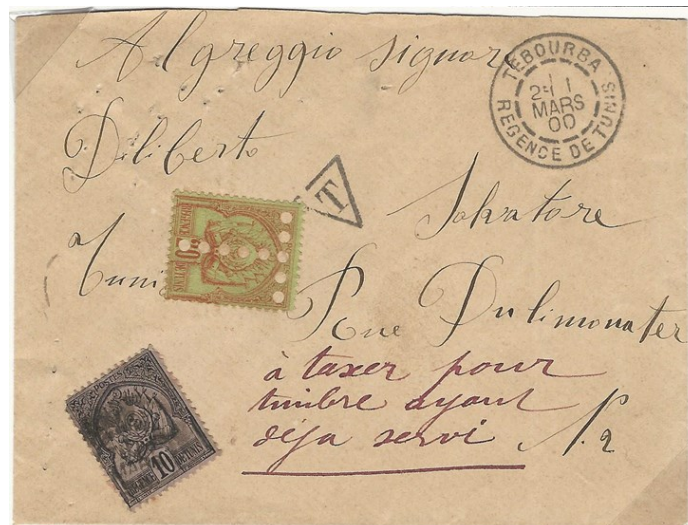 Al greggio signore
TEBOURBA
2E 1
MARS
00
REGENCE DE TUNIS
Diliberto
T
Salvatore
Rue Dulimonater
à taxer pour
timbre ayant
déja servi N. 2
POSTES
10
REGENCE DE TUNIS